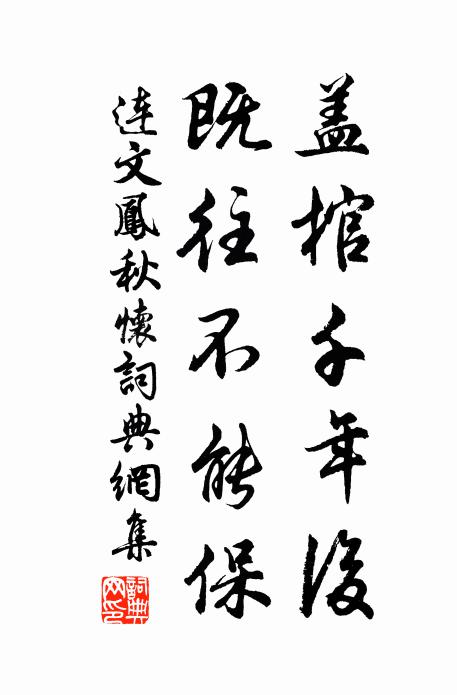 盖棺千年後
既往不能保
連文鳳秋懷詞典網集
詞典网印